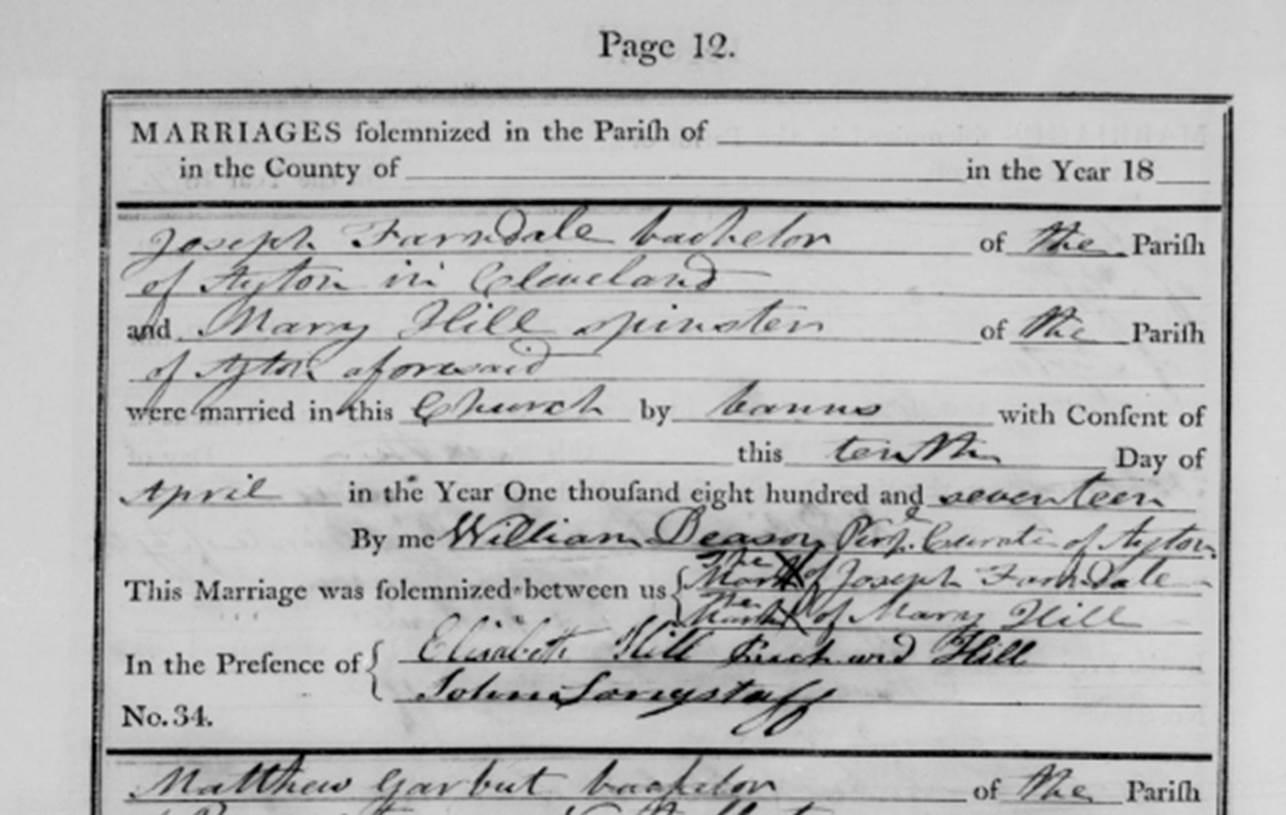 Page 12.
MARRIAGES ſolemnized in the Pariſh of
in the County of in the Year 18
Joseph Farndale bachelor of the Pariſh
of Ayton in Cleveland
and Mary Hill spinster of the Pariſh
of Ayton aforesaid
were married in this Church by banns with Conſent of
this tenth Day of
April in the Year One thouſand eight hundred and seventeen
By me William Deason Perp. Curate of Ayton
This Marriage was ſolemnized between us { The Mark X of Joseph Farndale
The Mark X of Mary Hill
In the Preſence of { Elisabeth Hill Richard Hill
John Longstaff
No. 34.
Matthew Garbut bachelor of the Pariſh